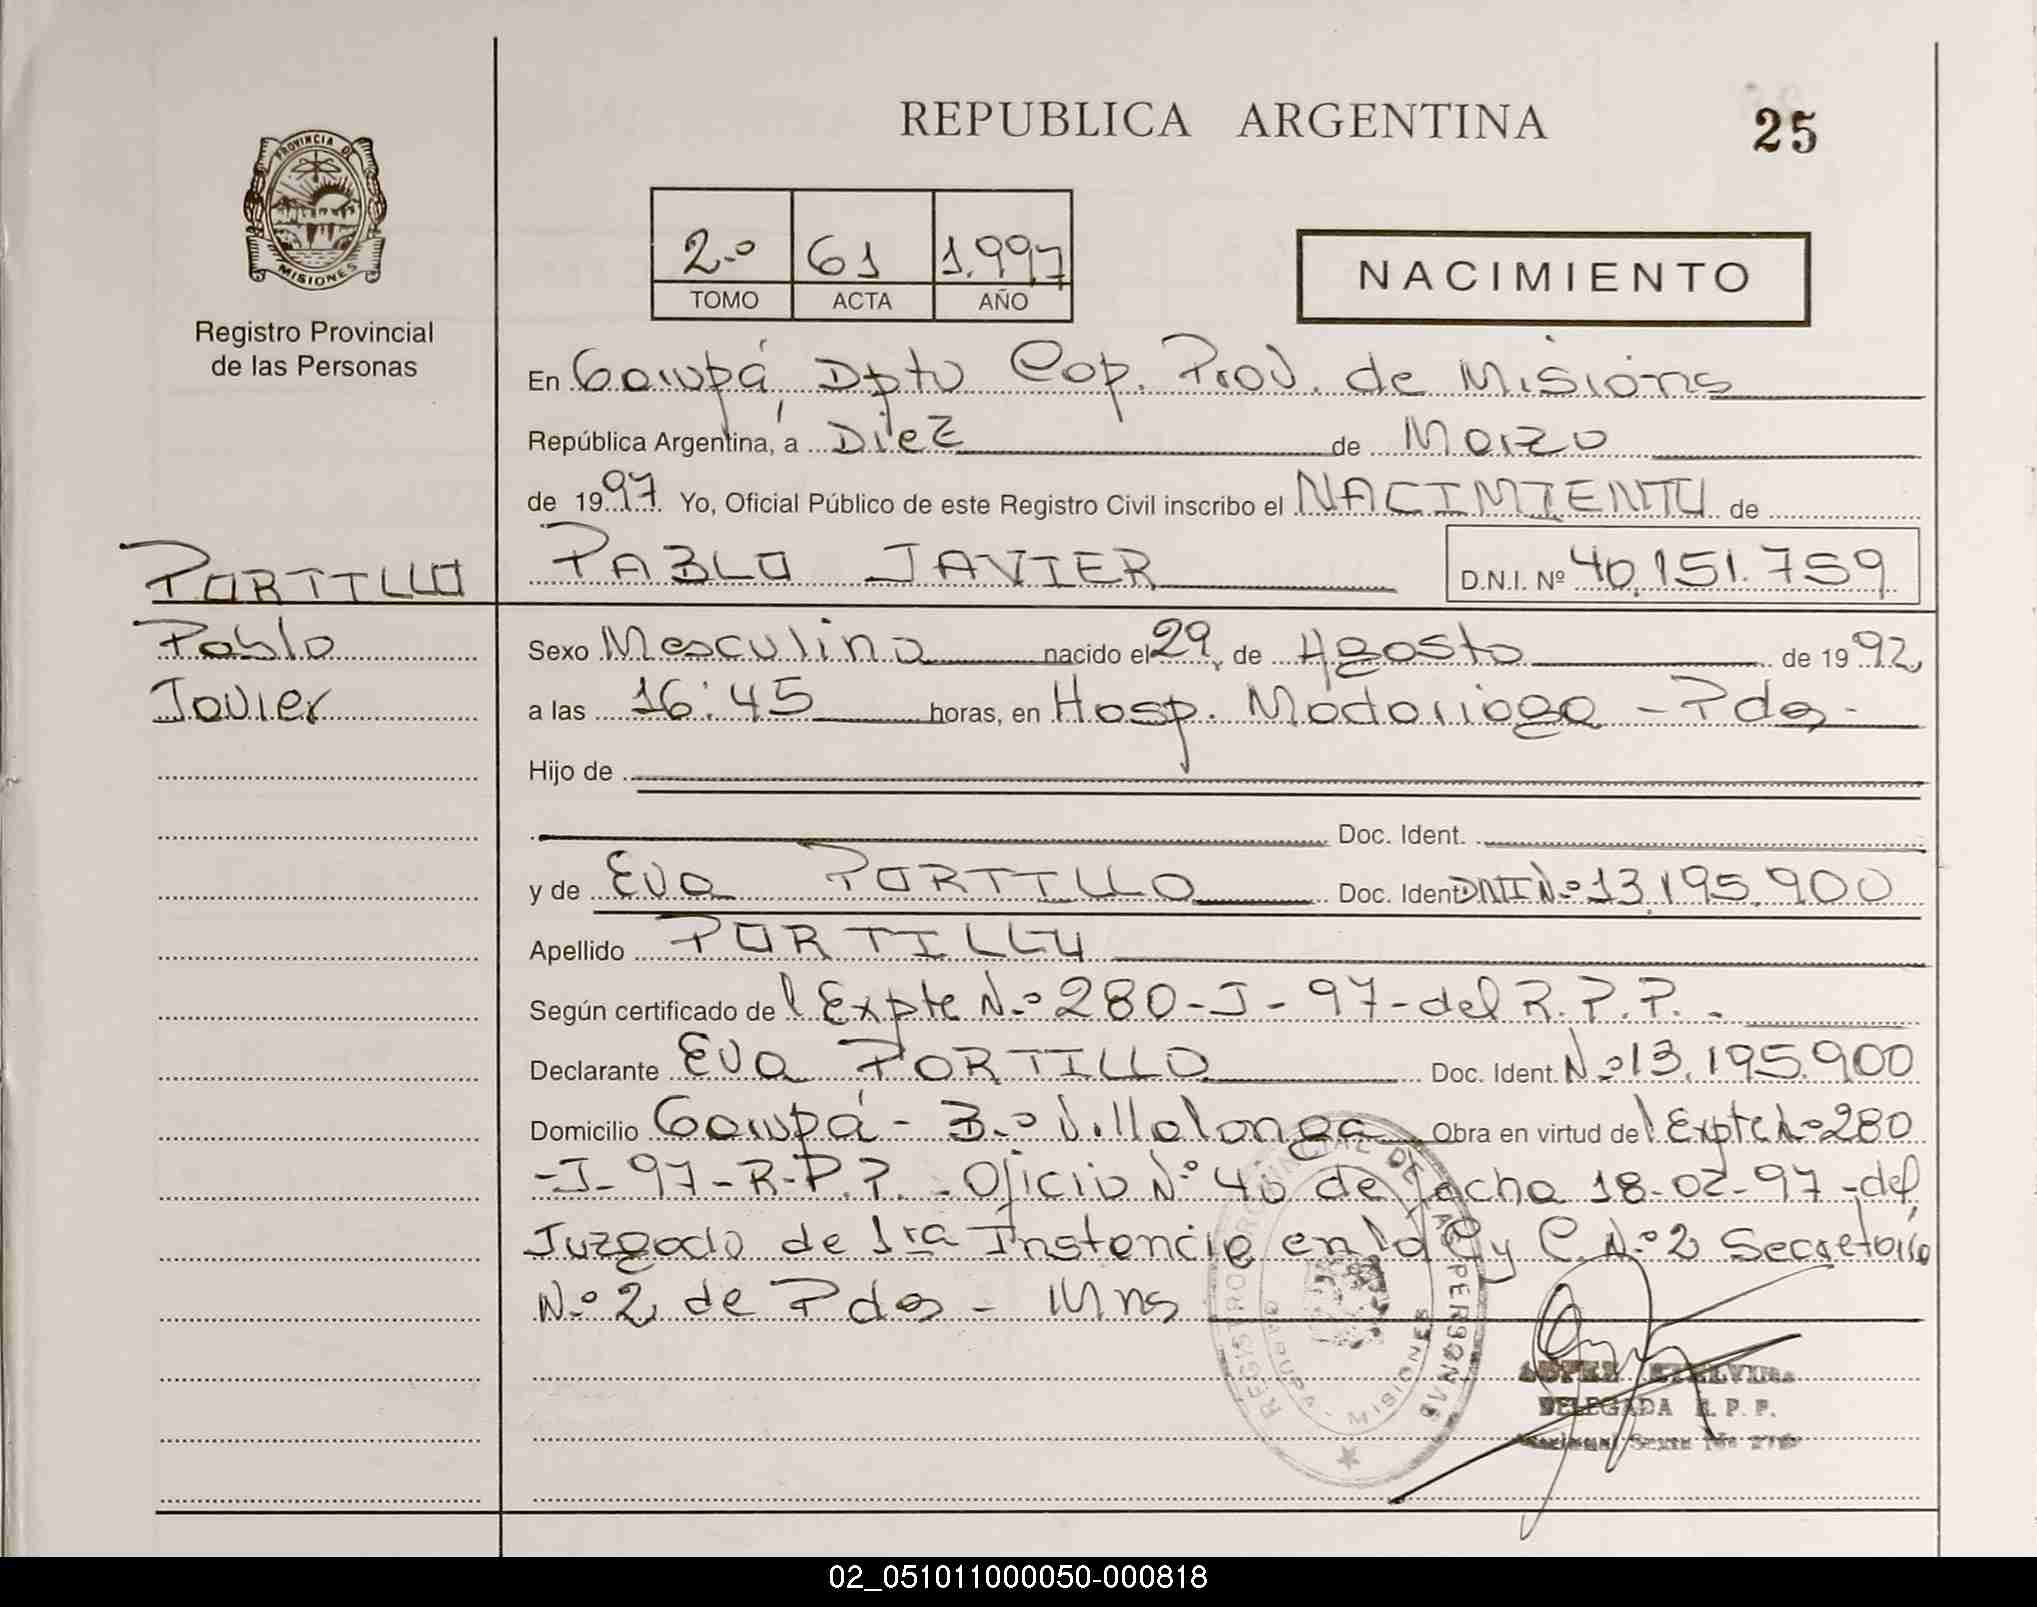 REPUBLICA ARGENTINA
25
PROVINCIA DE
MISIONES
Registro Provincial
de las Personas
2.º 61 1.997
TOMO ACTA AÑO
NACIMIENTO
En Garupá, Dpto Cap. Prov. de Misions
República Argentina, a Diez de Marzo
de 1997 Yo, Oficial Público de este Registro Civil inscribo el NACIMIENTO de
PORTILLO PABLO JAVIER D.N.I. Nº 40.151.759
Pablo Sexo Masculino nacido el 29 de Agosto de 1992
Javier a las 16:45 horas, en Hosp. Madariaga - Pdas -
Hijo de
Doc. Ident.
y de Eva PORTILLO Doc. Ident DNI N.º 13.195.900
Apellido PORTILLO
Según certificado de l Expte N.º 280-J-97-del R.P.P. -
Declarante Eva PORTILLO Doc. Ident. N.º 13.195.900
Domicilio Garupá - B.º Villalonga Obra en virtud de l Expte Nº 280
-J-97-R.P.P. - Oficio Nº 40 de facha 18-02-97-del
Juzgado de 1ra Instancia en lo C y C. N.º 2 Secretaría
N.º 2 de Pdas - Mns
REGISTRO PROVINCIAL DE LAS PERSONAS
GARUPA - MISIONES
LOPEZ ETELVINA
DELEGADA R. P. P.
02_051011000050-000818